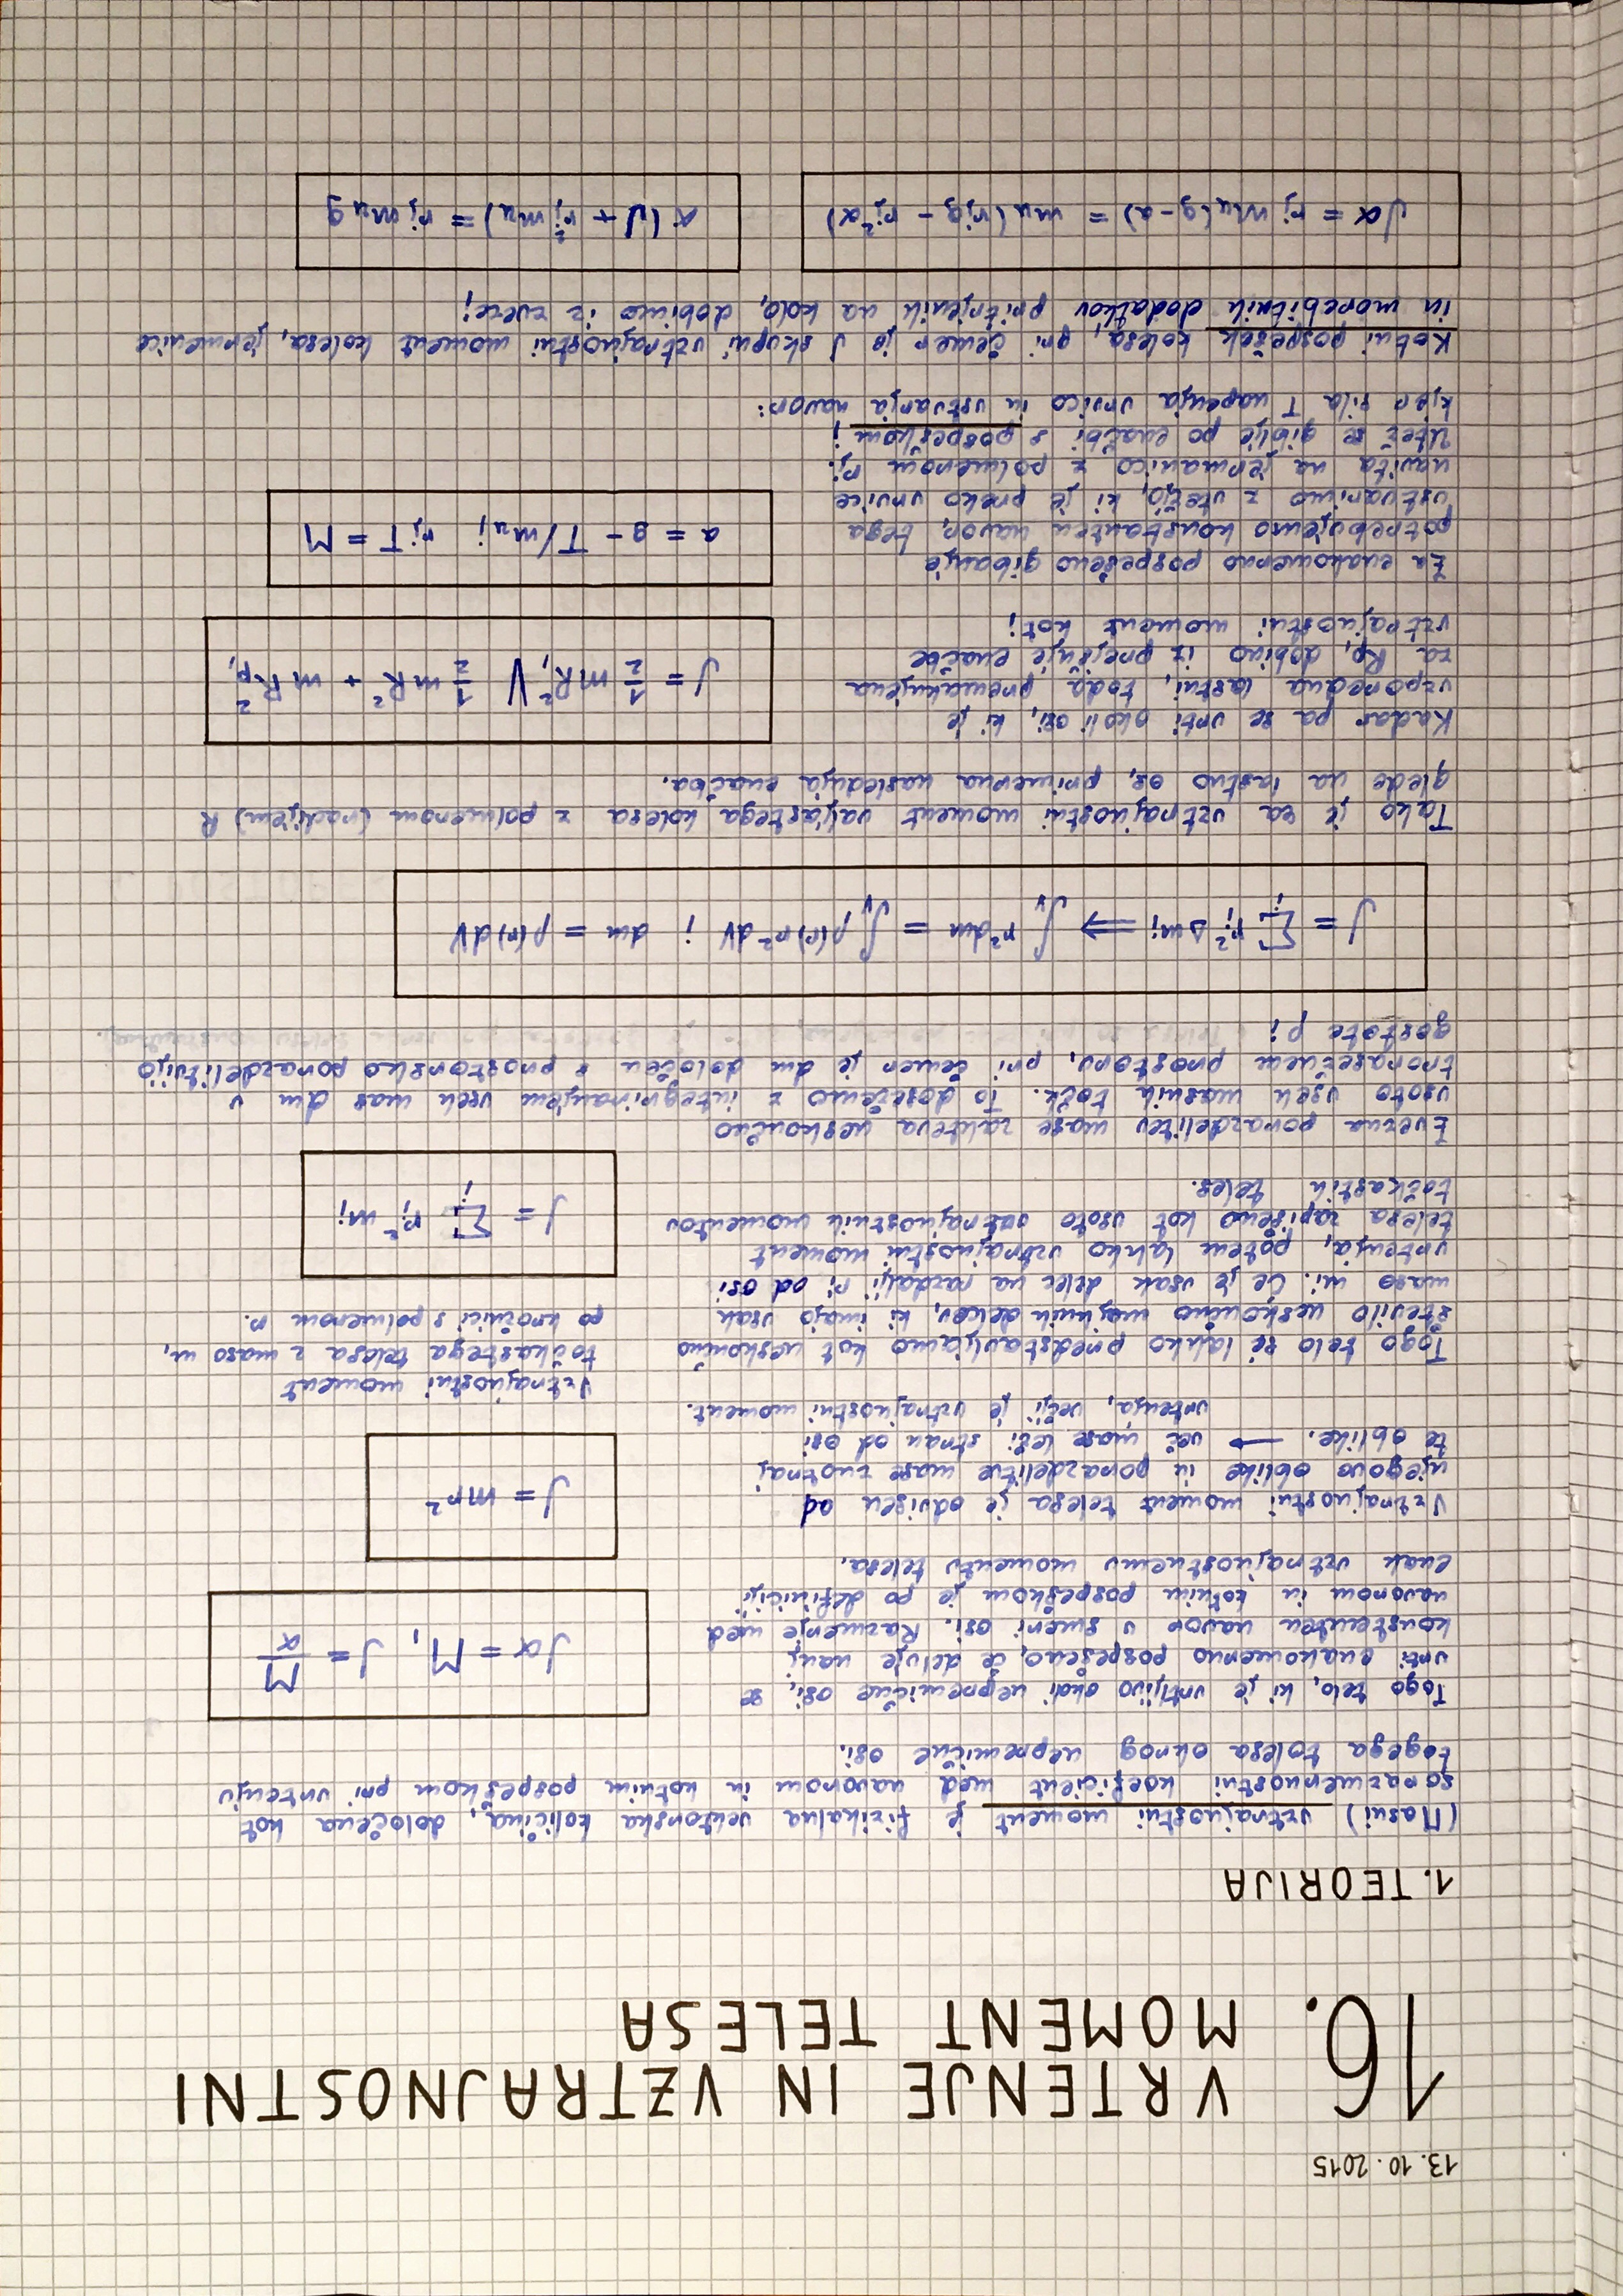 13. 10. 2015
16. VRTENJE IN VZTRAJNOSTNI
MOMENT TELESA
1. TEORIJA
(Masni) vztrajnostni moment je fizikalna vektorska količina, določena kot
sorazmernostni koeficient med navorom in kotnim pospeškom pri vrtenju
togega telesa okrog nepremične osi.
Togo telo, ki je vrtljivo okoli nepremične osi, se
vrti enakomerno pospešeno, če deluje nanj
konstanten navor v smeri osi. Razmerje med
navorom in kotnim pospeškom je po definiciji
enak vztrajnostnemu momentu telesa.
Jα = M, J = M/α
Vztrajnostni moment telesa je odvisen od
njegove oblike in porazdelitve mase znotraj
te oblike. → več mase leži stran od osi
vrtenja, večji je vztrajnostni moment.
J = mr²
Vztrajnostni moment
točkastega telesa z maso m,
po krožnici s polmerom r.
Togo telo si lahko predstavljamo kot neskončno
število neskončno majhnih delcev, ki imajo vsak
maso mi. Če je vsak delec na razdalji ri od osi
vrtenja, potem lahko vztrajnostni moment
telesa zapišemo kot vsoto vztrajnostnih momentov
točkastih teles.
J = Σᵢ rᵢ² mᵢ
Zvezna porazdelitev mase zahteva neskončno
vsoto vseh masnih točk. To dosežemo z integriranjem vseh mas dm v
trorasežnem prostoru, pri čemer je dm določen s prostorsko porazdelitvijo
gostote ρ;
J = Σᵢ rᵢ² Δmᵢ ⟹ ∫ᵥ r²dm = ∫ᵥ ρ(r)r²dV ; dm = ρ(r)dV
Tako je za vztrajnostni moment valjastega kolesa z polmerom (radijem) R
glede na lastno os, primerna naslednja enačba.
Kadar pa se vrti okoli osi, ki je
vzporedna lastni, toda premaknjena
za Rp, dobimo iz prejšnje enačbe
vztrajnostni moment kot;
J = ½ mR², V ½ mR² + mRp²,
Za enakomerno pospešeno gibanje
potrebujemo konstanten navor, tega
ustvarimo z utežjo, ki je preko vrvice
navita na jermanico z polmerom rj.
Utež se giblje po enačbi s pospeškom;
kjer sila T napenja vrvico in ustvarja navor:
a = g - T/mu; rjT = M
Kotni pospešek kolesa, pri čemer je J skupni vztrajnostni moment kolesa, jermenice
in morebitnih dodatkov pritrjenih na kolo, dobimo iz zveze;
Jα = rj mu(g-a) = mu(rjg - rj²α)
α(J + rj²mu) = rj mu g